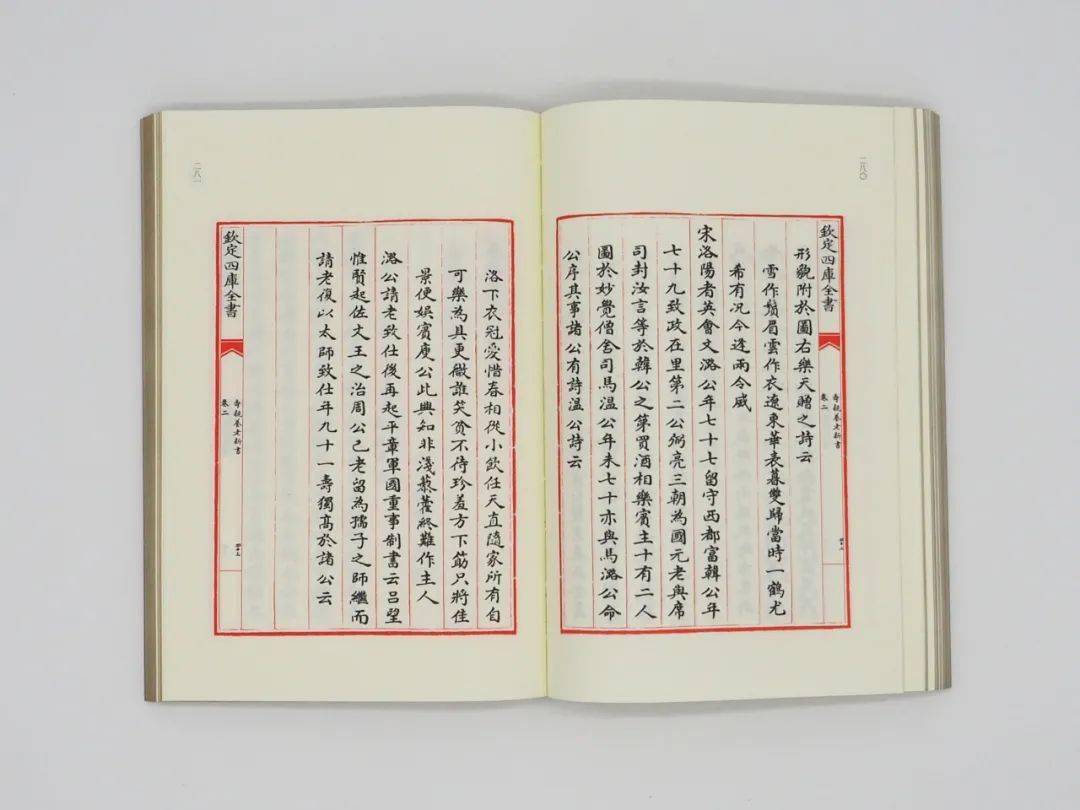 二八〇
欽定四庫全書
壽親養老新書
卷二
形貌附於圖右樂天贈之詩云
雪作鬚眉雲作衣遼東華表暮雙歸當時一鶴尤
希有況今逢兩令威
宋洛陽耆英會文潞公年七十七留守西都富韓公年
七十九致政在里第二公弼亮三朝為國元老與席
司封汝言等於韓公之第買酒相樂賓主十有二人
圖於妙覺僧舍司馬溫公年未七十亦與焉潞公命
公序其事諸公有詩溫公詩云
二八一
欽定四庫全書
壽親養老新書
卷二
洛下衣冠愛惜春相從小飲任天真隨家所有自
可樂為具更微誰笑貧不待珍羞方下筯只將佳
景便娛賓庾公此興如非淺藜藿終難作主人
潞公請老致仕後再起平章軍國重事制書云呂望
惟賢起佐文王之治周公已老留為孺子之師繼而
請老復以太師致仕年九十一壽獨高於諸公云